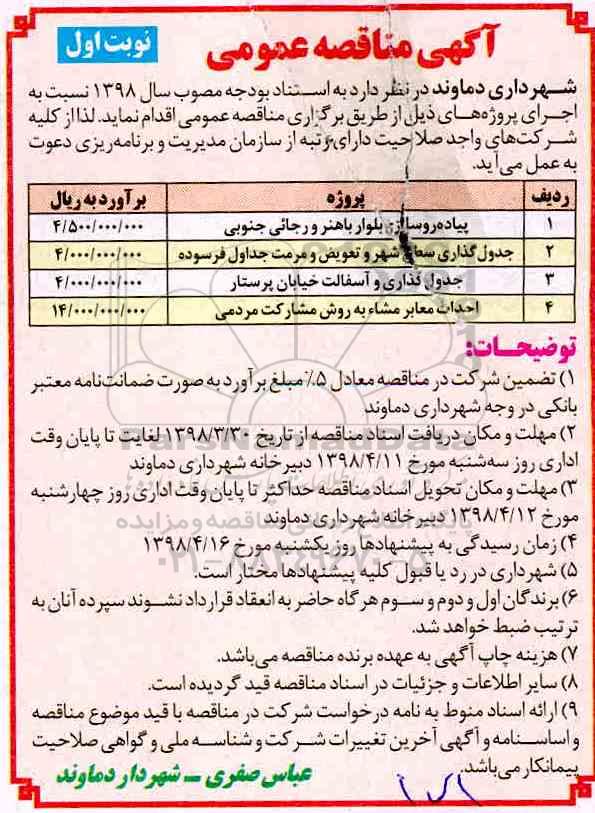 آگهی مناقصه عمومی
نوبت اول
شهرداری دماوند در نظر دارد به استناد بودجه مصوب سال ۱۳۹۸ نسبت به
اجرای پروژه‌های ذیل از طریق برگزاری مناقصه عمومی اقدام نماید. لذا از کلیه
شرکت‌های واجد صلاحیت دارای رتبه از سازمان مدیریت و برنامه‌ریزی دعوت
به عمل می‌آید.
ردیف پروژه برآورد به ریال
۱ پیاده‌روسازی بلوار باهنر و رجائی جنوبی ۴/۵۰۰/۰۰۰/۰۰۰
۲ جدول‌گذاری سطح شهر و تعویض و مرمت جداول فرسوده ۴/۰۰۰/۰۰۰/۰۰۰
۳ جدول گذاری و آسفالت خیابان پرستار ۴/۰۰۰/۰۰۰/۰۰۰
۴ احداث معابر مشاء به روش مشارکت مردمی ۱۴/۰۰۰/۰۰۰/۰۰۰
توضیحات:
۱) تضمین شرکت در مناقصه معادل ۵٪ مبلغ برآورد به صورت ضمانت‌نامه معتبر
بانکی در وجه شهرداری دماوند
۲) مهلت و مکان دریافت اسناد مناقصه از تاریخ ۱۳۹۸/۳/۳۰ لغایت تا پایان وقت
اداری روز سه‌شنبه مورخ ۱۳۹۸/۴/۱۱ دبیرخانه شهرداری دماوند
۳) مهلت و مکان تحویل اسناد مناقصه حداکثر تا پایان وقت اداری روز چهارشنبه
مورخ ۱۳۹۸/۴/۱۲ دبیرخانه شهرداری دماوند
۴) زمان رسیدگی به پیشنهادها روز یکشنبه مورخ ۱۳۹۸/۴/۱۶
۵) شهرداری در رد یا قبول کلیه پیشنهادها مختار است.
۶) برندگان اول و دوم و سوم هرگاه حاضر به انعقاد قرارداد نشوند سپرده آنان به
ترتیب ضبط خواهد شد.
۷) هزینه چاپ آگهی به عهده برنده مناقصه می‌باشد.
۸) سایر اطلاعات و جزئیات در اسناد مناقصه قید گردیده است.
۹) ارائه اسناد منوط به نامه درخواست شرکت در مناقصه با قید موضوع مناقصه
و اساسنامه و آگهی آخرین تغییرات شرکت و شناسه ملی و گواهی صلاحیت
پیمانکار می‌باشد.
عباس صفری ـ شهردار دماوند
ParsNamadData
پایگاه اطلاع رسانی مناقصه و مزایده
۰۲۱-۸۸۳۴۹۶۷۰-۵